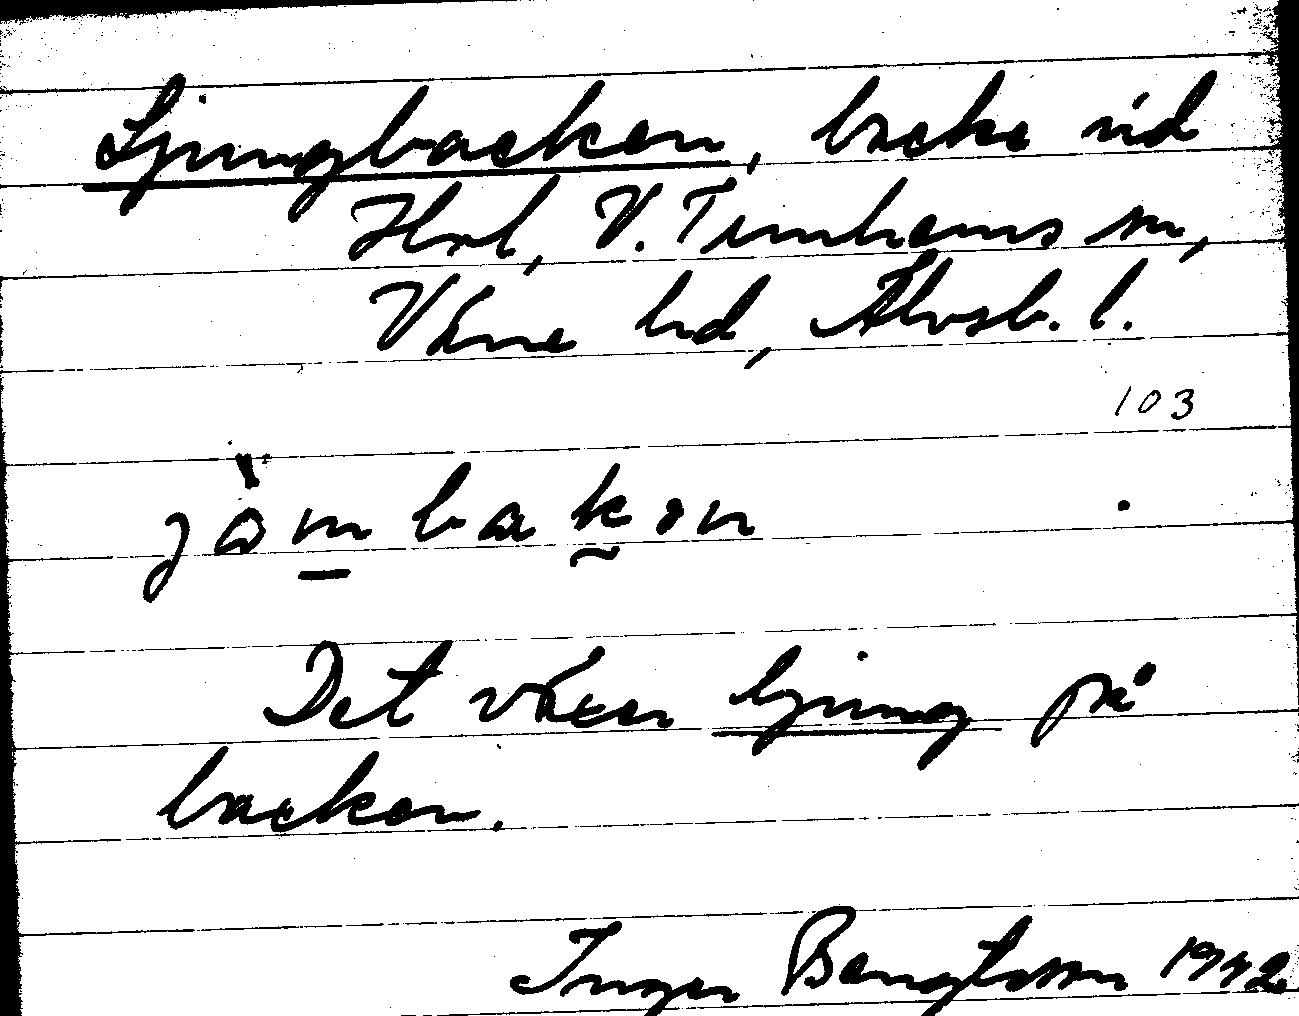 Ljungbacken, backe vid
Hol, V. Tunhems sn,
Väne hd, Älvsb. l.
103
jö̀mbakən
Det växer ljung på
backen.
Inger Bengtsson 1942